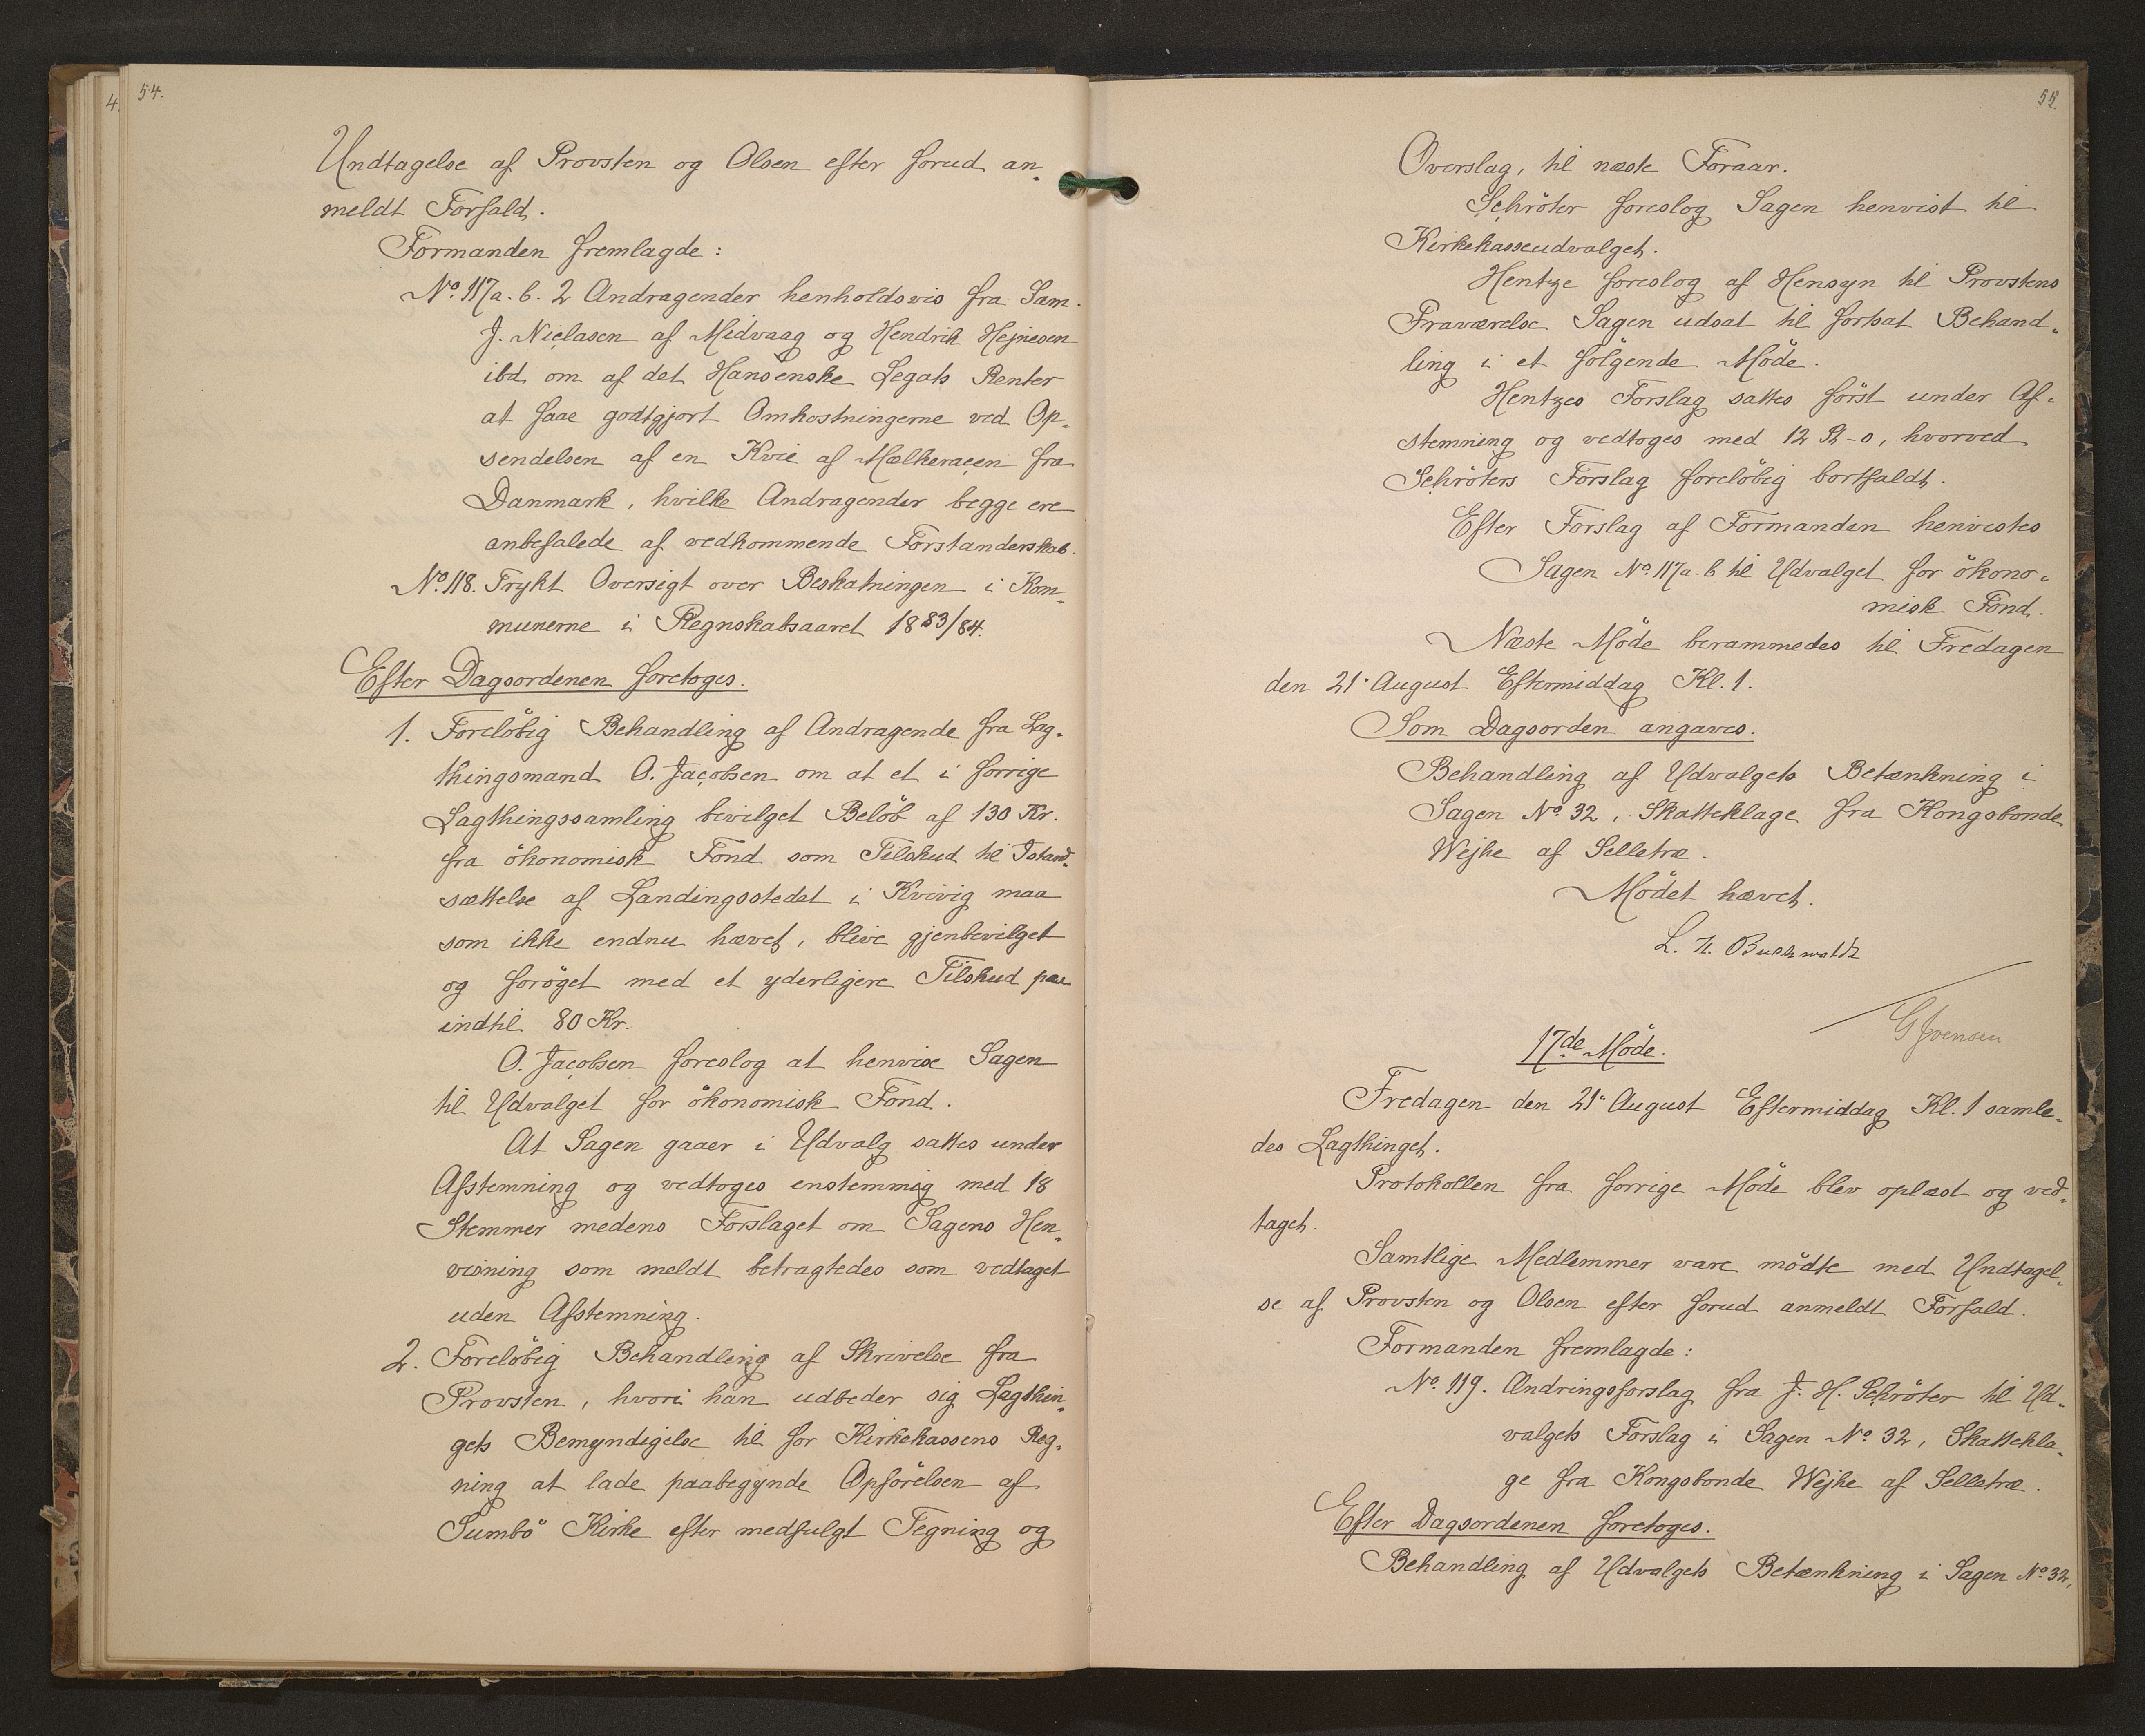 54.
Undtagelse af Provsten og Olsen efter forud an-
meldt Forfald.
Formanden fremlagde:
No. 117a.b. 2 Andragender henholdsvis fra Sam.
J. Nielasen af Midvaag og Hendrik Hejnesen
ibd. om af det Hansenske Legats Renter
at faae godtgjort Omkostningerne ved Op-
sendelsen af en Kvie af Malkeracen fra
Danmark, hvilke Andragender begge ere
anbefalede af vedkommende Forstanderskab.
No. 118. Trykt Oversigt over Beskatningen i Kom-
munerne i Regnskabsaaret 1883/84.
Efter Dagsordenen foretoges.
1. Foreløbig Behandling af Andragende fra Lag-
thingsmand O. Jacobsen om at et i forrige
Lagthingssamling bevilget Beløb af 130 Kr.
fra økonomisk Fond som Tilskud til Istand-
sættelse af Landingsstedet i Kvivig maa
som ikke endnu hævet, blive gjenbevilget
og forøget med et yderligere Tilskud paa
indtil 80 Kr.
O. Jacobsen foreslog at henvise Sagen
til Udvalget for økonomisk Fond.
At Sagen gaaer i Udvalg sattes under
Afstemning og vedtoges enstemmig med 18
Stemmer medens Forslaget om Sagens Hen-
visning som meldt betragtedes som vedtaget
uden Afstemning.
2. Foreløbig Behandling af Skrivelse fra
Provsten, hvori han udbeder sig Lagthin-
gets Bemyndigelse til for Kirkekassens Reg-
ning at lade paabegynde Opførelsen af
Sumbø Kirke efter medfulgt Tegning og
55.
Overslag, til næste Foraar.
Schrøter foreslog Sagen henvist til
Kirkekasseudvalget.
Hentze foreslog af Hensyn til Provstens
Fraværelse Sagen udsat til fortsat Behand-
ling i et følgende Møde.
Hentzes Forslag sattes først under Af-
stemning og vedtoges med 12 St-0, hvorved
Schrøters Forslag foreløbig bortfaldt.
Efter Forslag af Formanden henvistes
Sagen No. 117a-b til Udvalget for økono-
misk Fond.
Næste Møde berammedes til Fredagen
den 21. August Eftermiddag Kl. 1.
Som Dagsorden angaves.
Behandling af Udvalgets Betænkning i
Sagen No. 32, Skatteklage fra Kongsbonde
Wejhe af Selletræ.
Mødet hævet.
L. H. Buchwaldt
G Ivensen
17de Møde.
Fredagen den 21. August Eftermiddag Kl. 1 samle-
des Lagthinget.
Protokollen fra forrige Møde blev oplæst og ved-
taget.
Samtlige Medlemmer vare mødte med Undtagel-
se af Provsten og Olsen efter forud anmeldt Forfald.
Formanden fremlagde:
No. 119. Ændringsforslag fra J. H. Schrøter til Ud-
valgets Forslag i Sagen No. 32, Skattekla-
ge fra Kongsbonde Wejhe af Selletræ.
Efter Dagsordenen foretoges.
Behandling af Udvalgets Betænkning i Sagen No. 32,